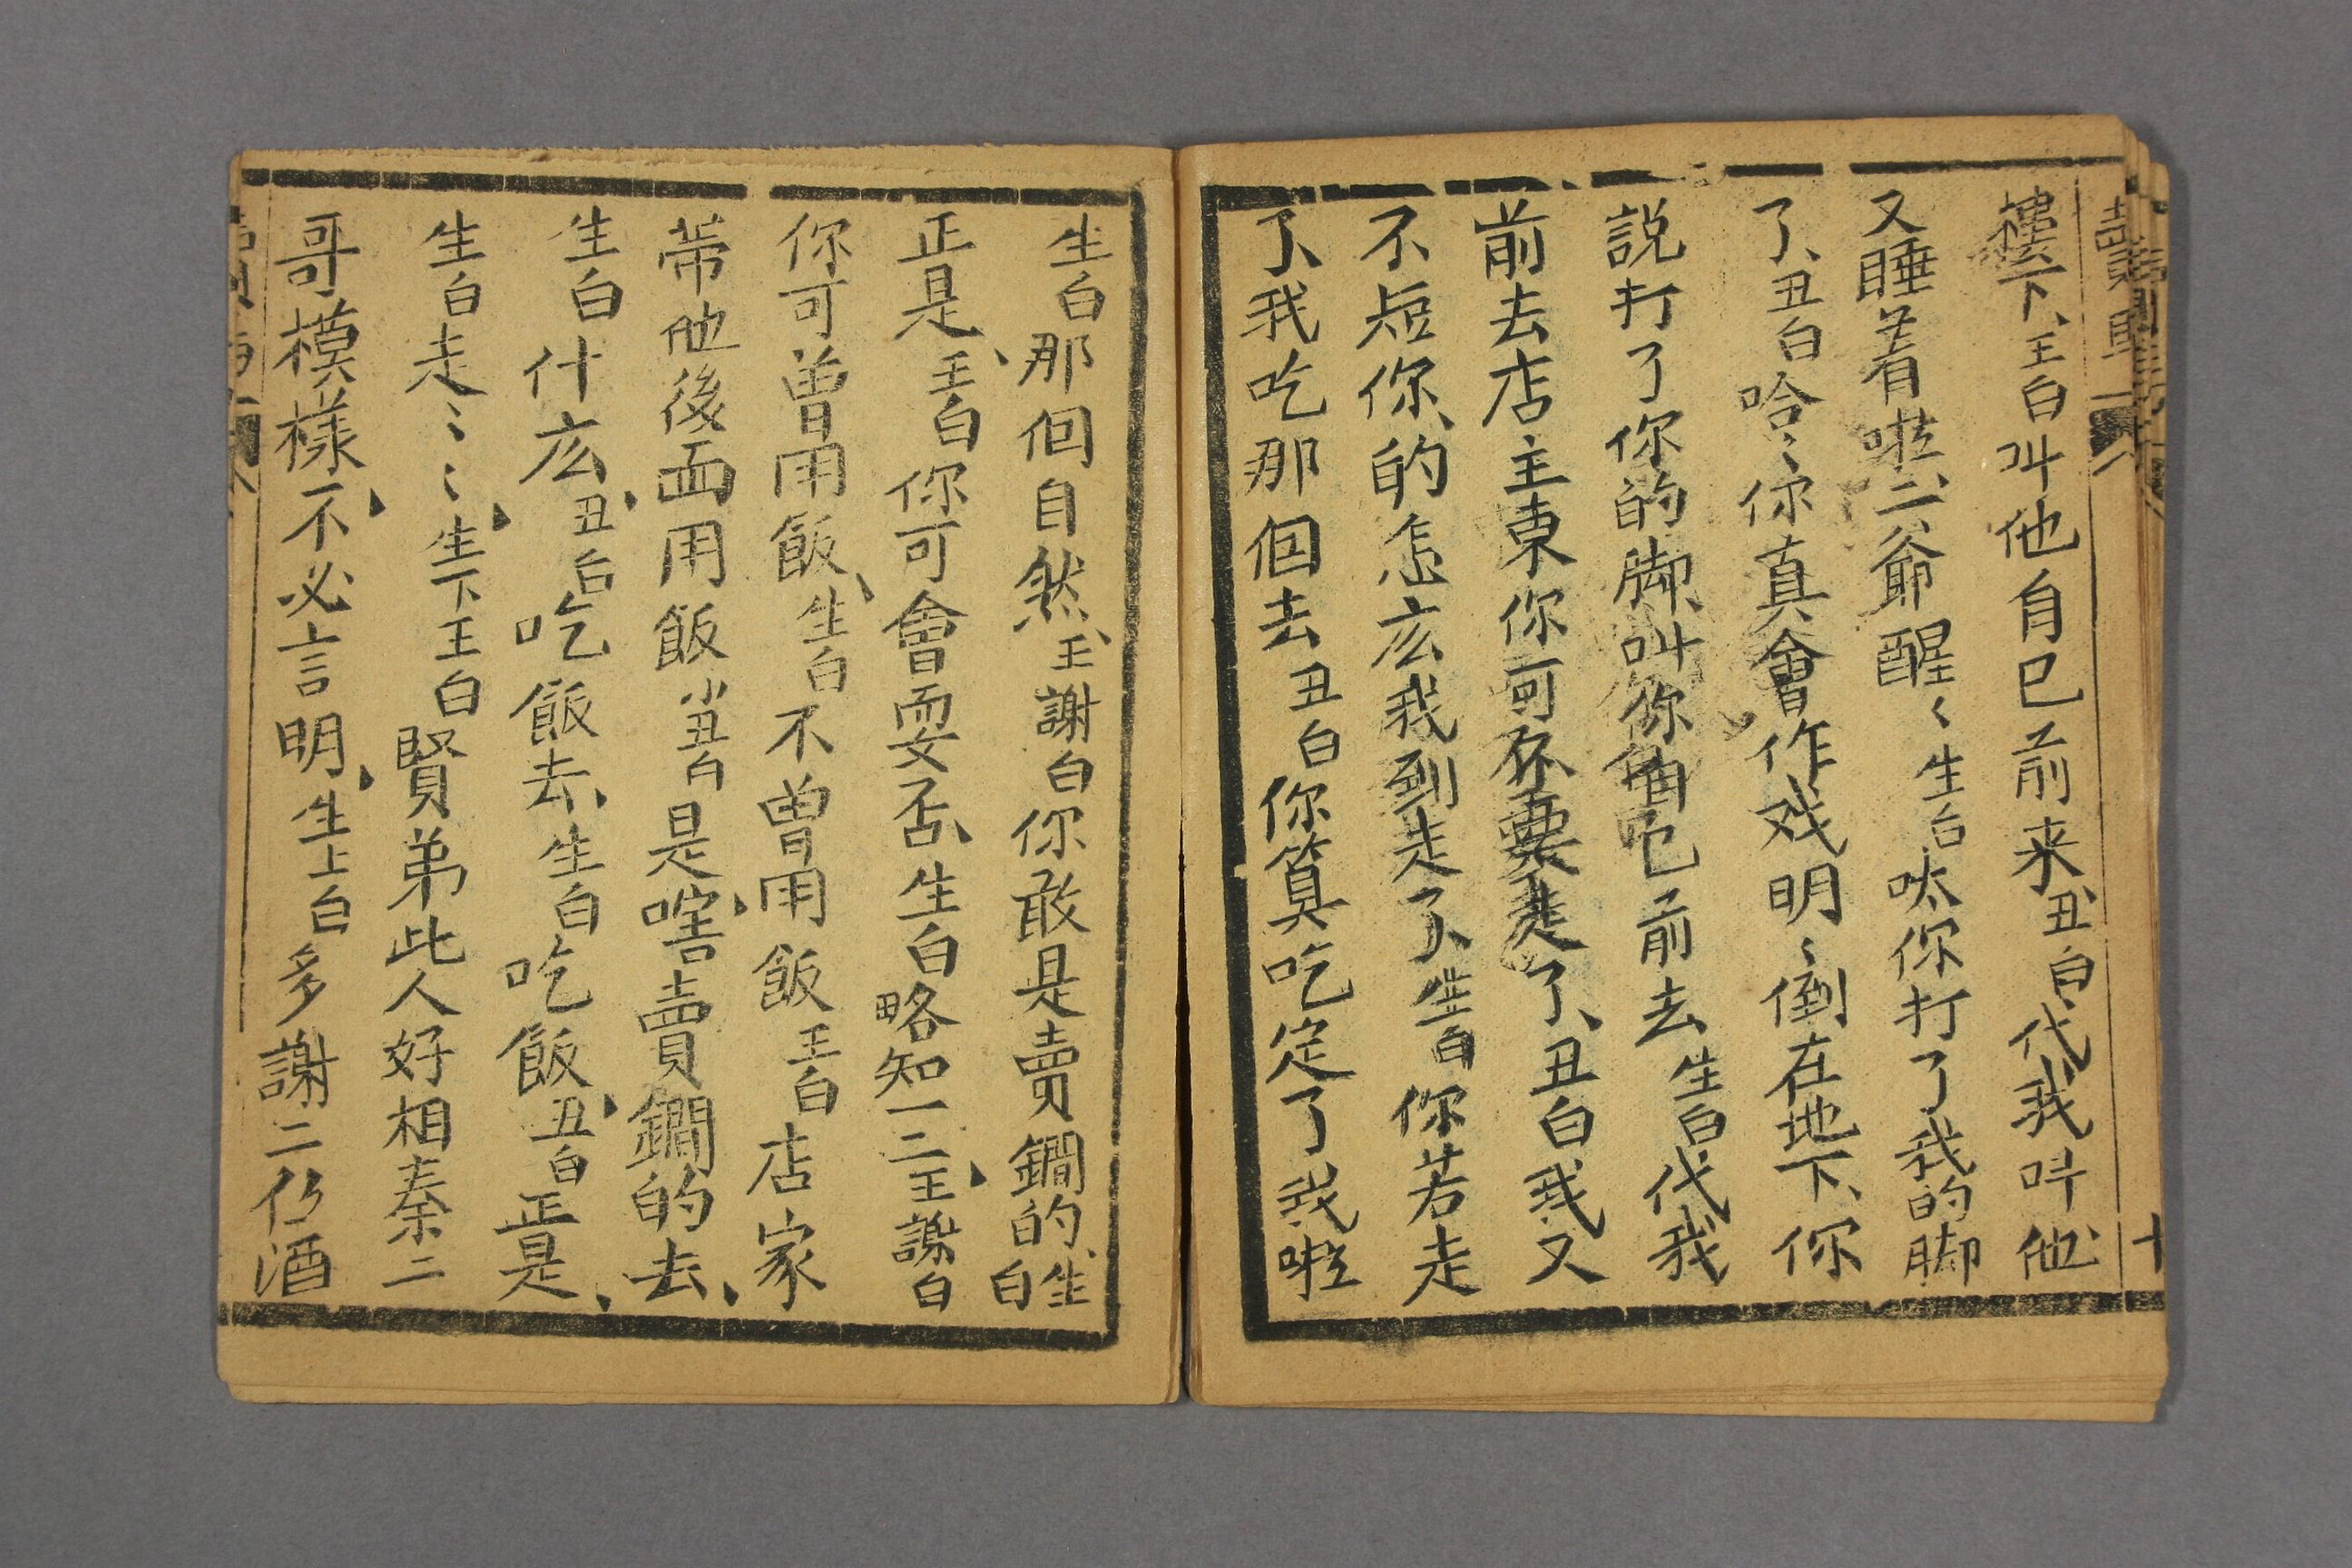 樓下、王白叫他自已前来、丑白代我叫他、
又睡着啦、二爺醒〻生白呔你打了我的脚
了、丑白哈〻你真會作戏明〻倒在地下、你
説打了你的脚、叫你自已前去生白代我
前去店主東你可不要走了、丑白我又
不短你、的怎庅我到走了、生白你若走
了、我吃那個去丑白你算吃定了我啦
生白那個自然、王謝白你敢是賣鐧的、生白
正是、王白你可會耍否、生白略知一二、王謝白
你可曾用飯、生白不曽用飯王白店家
帶他後面用飯小丑白是嘻、賣鐧的去、
生白什庅、丑白吃飯去、生白吃飯、丑白正是、
生白走〻〻、生下王白賢弟此人好相秦二
哥模樣、不必言明、生上白多謝二仍酒